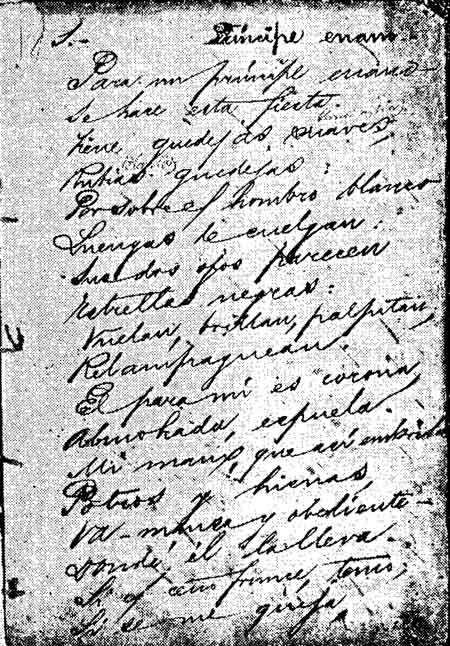 S.- Príncipe enano-
Para un príncipe enano
Se hace esta fiesta.
Tiene guedejas suaves,
Rubias guedejas:
Por sobre el hombro blanco
Luengas le cuelgan.
Sus dos ojos parecen
Estrellas negras:
Vuelan, brillan, palpitan,
Relampaguean.
El para mí es corona,
Almohada, espuela.
Mi mano, que así embrida
Potros y hienas,
Va-mansa y obediente-
Donde él la lleva.
Si el ceño frunce, temo;
Si se me queja,